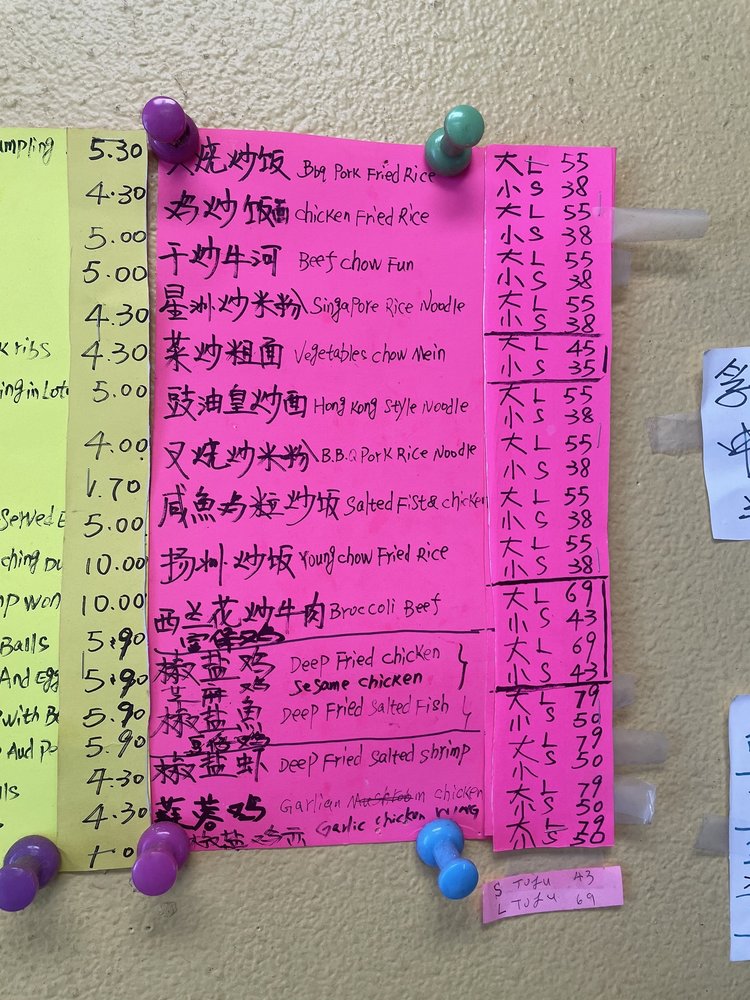 5.30
4.30
5.00
5.00
4.30
K ribs 4.30
5.00
4.00
1.70
Served 5.00
10.00
10.00
Balls 5.90
And Egg 5.90
With 5.90
5.90
4.30
4.30
烧炒饭 Bbq Pork Fried Rice
鸡炒饭面 chicken Fried Rice
干炒牛河 Beef chow Fun
星洲炒米粉 Singapore Rice Noodle
菜炒粗面 Vegetables chow Mein
豉油皇炒面 Hong Kong Style Noodle
叉烧炒米粉 B.B.Q Pork Rice Noodle
咸魚鸡粒炒饭 Salted Fist & chicken
扬州炒饭 Young chow Fried Rice
西兰花炒牛肉 Broccoli Beef
宫保鸡
椒盐鸡 Deep Fried chicken
芝麻鸡 sesame chicken
椒盐魚 Deep Fried Salted Fish
椒盐虾 Deep Fried salted shrimp
鸡 Garlian chicken
椒盐鸡 Garlic chicken WING
大 L 55
小 S 38
大 L 55
小 S 38
大 L 55
小 S 38
大 L 55
小 S 38
大 L 45
小 S 35
大 L 55
小 S 38
大 L 55
小 S 38
大 L 55
小 S 38
大 L 55
小 S 38
大 L 69
小 S 43
大 L 69
小 S 43
大 L 79
小 S 50
大 L 79
小 S 50
大 L 79
小 S 50
大 L 79
小 S 50
S TOFU 43
L TOFU 69